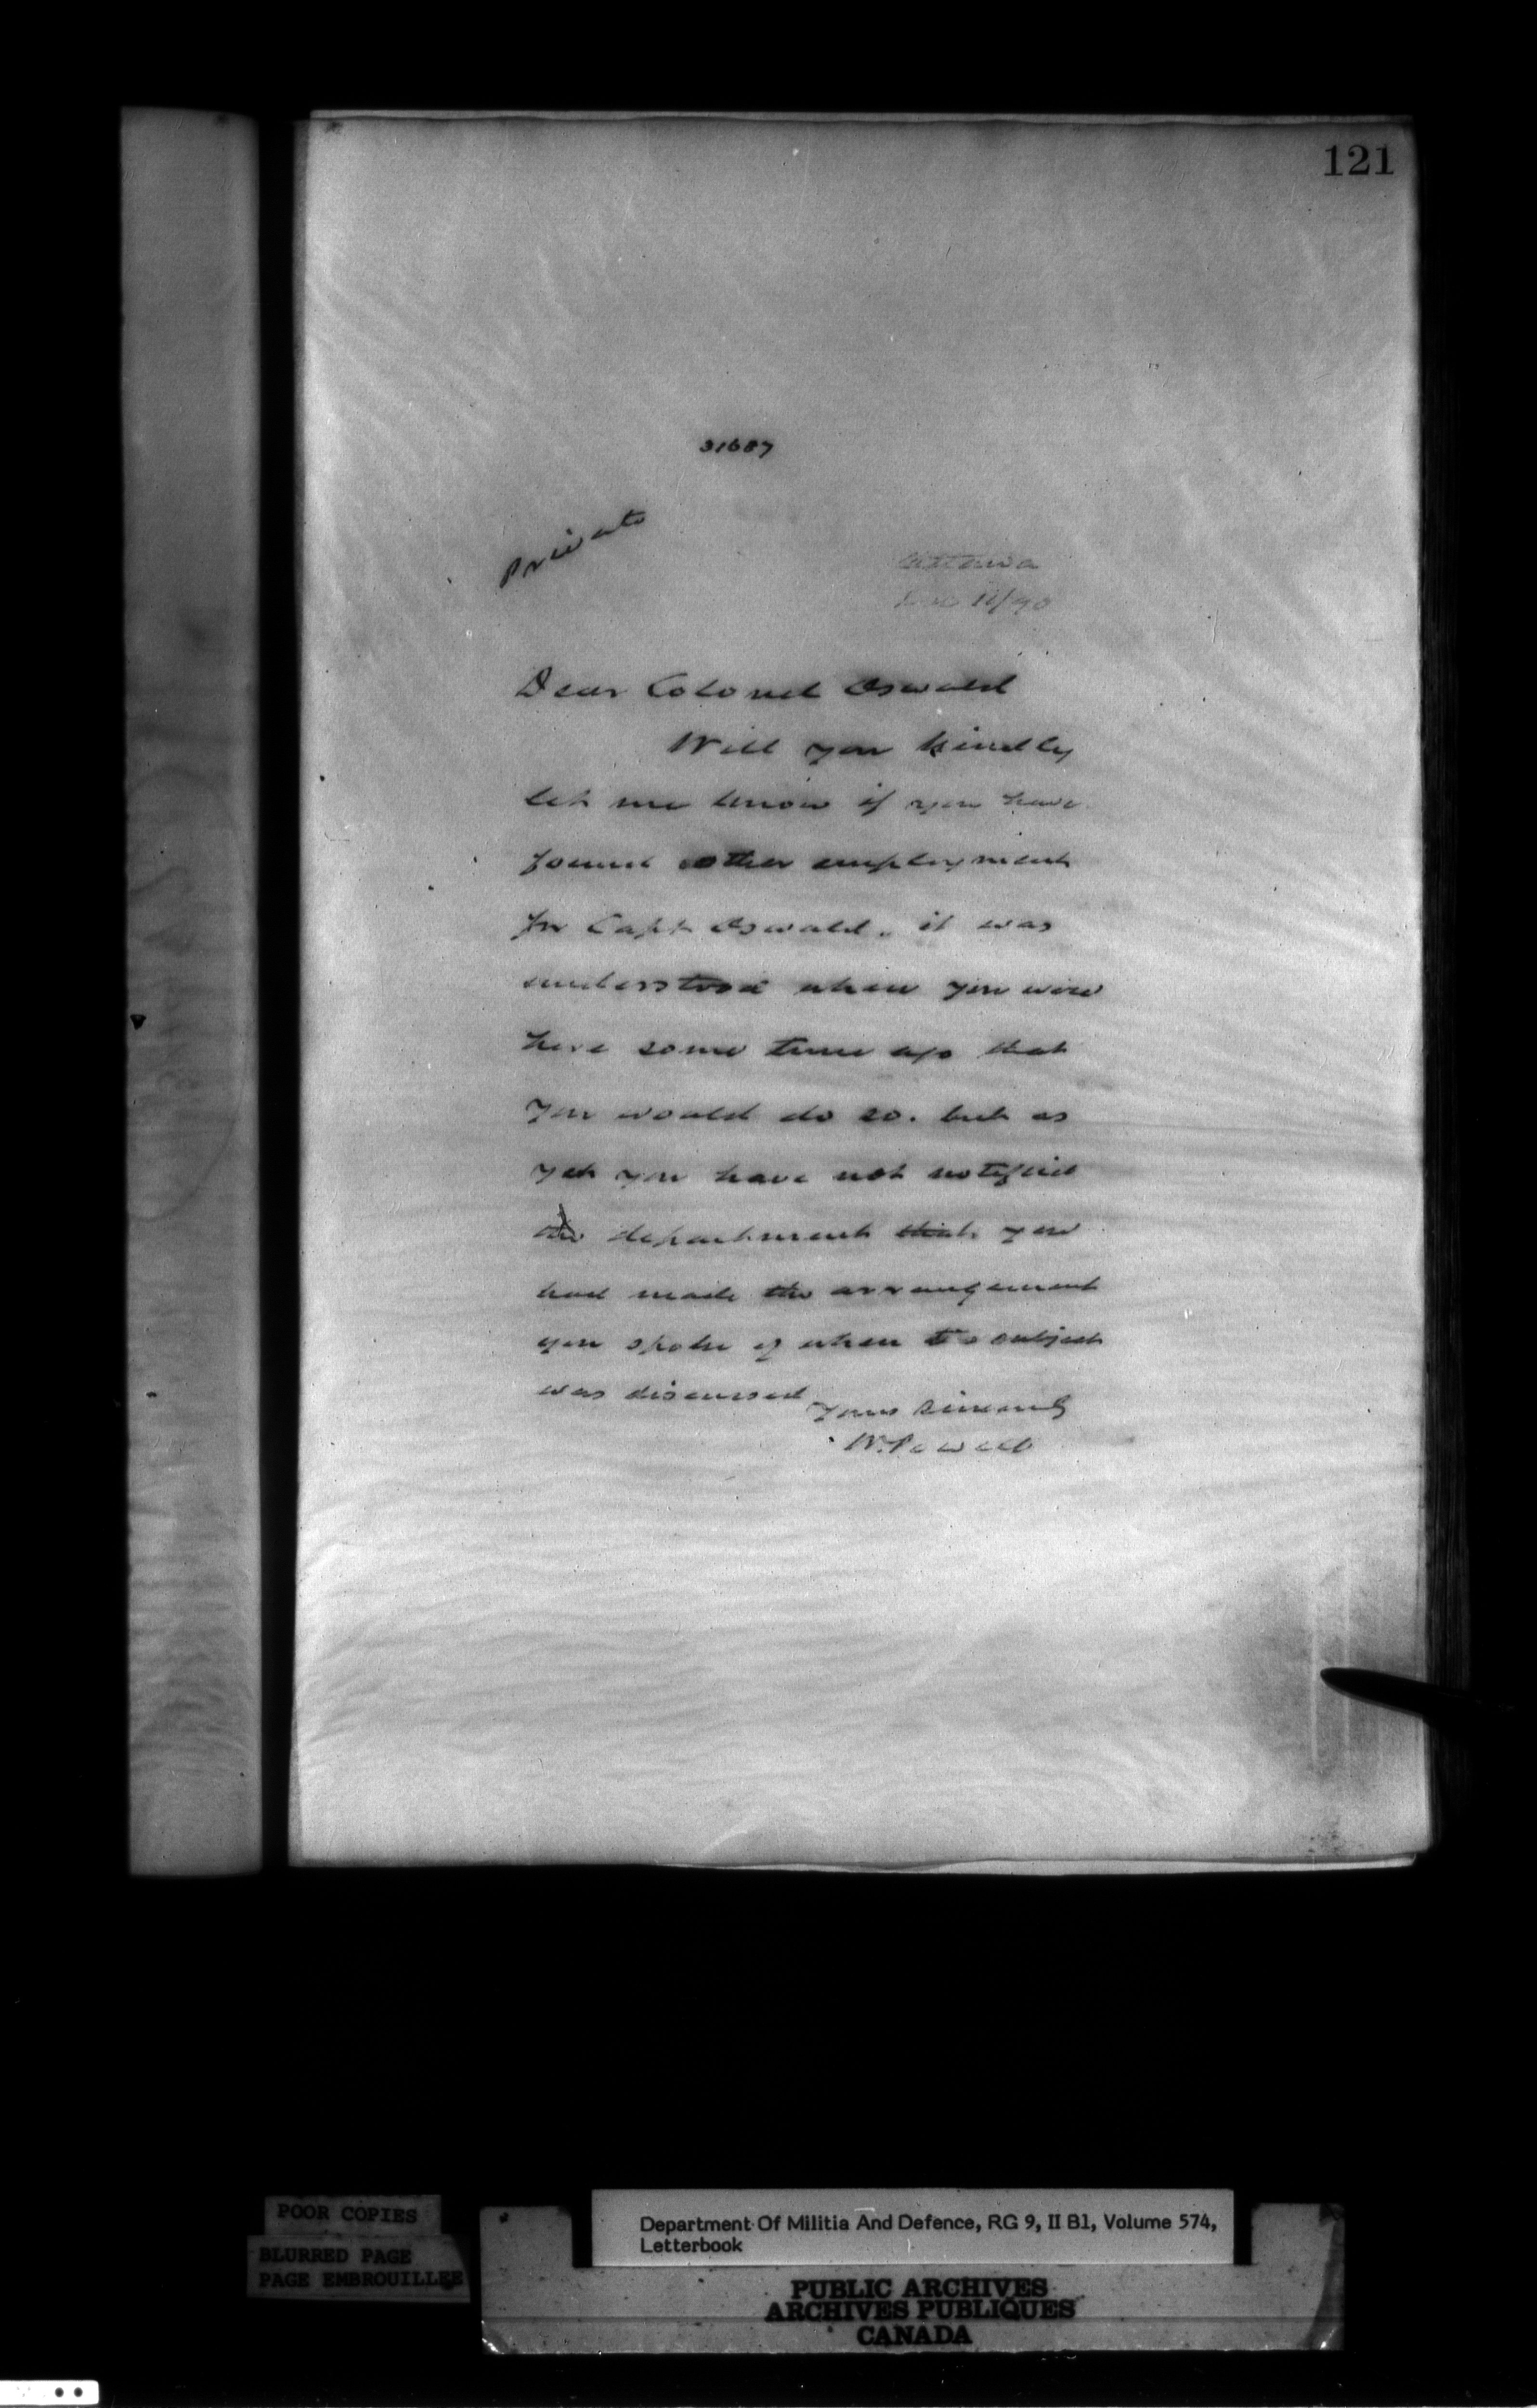 121
31687
Private
Ottawa
11/90
Dear Colonel Oswald
Will you kindly
let me know if you have
found other employment
for Capt Oswald. it was
understood when you were
here some time ago that
you would do so. but as
yet you have not notified
the department that you
had made the arrangement
you spoke of when the subject
was discussed
Yours sincerely
W. Powell
POOR COPIES
BLURRED PAGE
PAGE EMBROUILLEE
Department Of Militia And Defence, RG 9, II B1, Volume 574,
Letterbook
PUBLIC ARCHIVES
ARCHIVES PUBLIQUES
CANADA